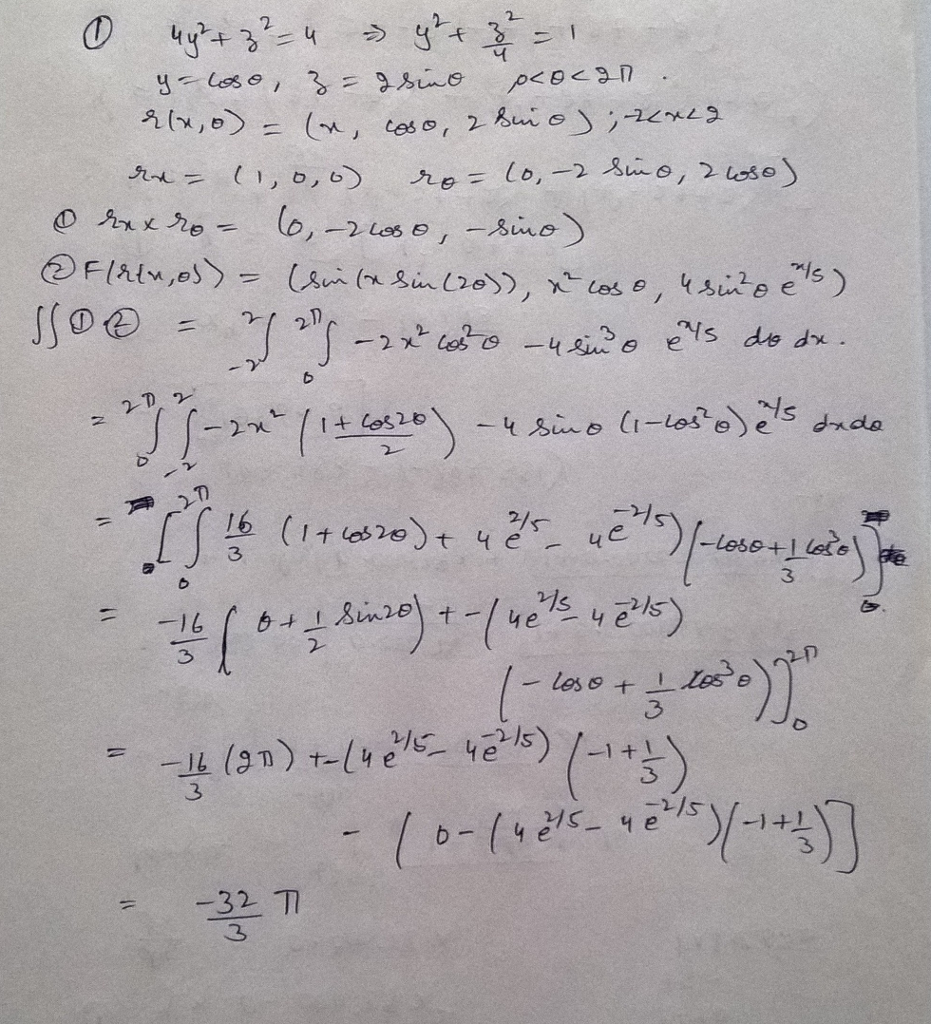 ① 4y² + z² = 4 ⇒ y² + z²/4 = 1
y = cosθ, z = 2 sinθ 0<θ<2π.
r(x,θ) = (x, cosθ, 2 sinθ); -2<x<2
rx = (1,0,0) rθ = (0, -2 sinθ, 2cosθ)
① rx × rθ = (0, -2cosθ, -sinθ)
② F(r(x,θ)) = (sin(x sin(2θ)), x² cosθ, 4 sin²θ e^(x/5))
∫∫ ① ② = ₋₂²∫ ₀^2π∫ -2x² cos²θ - 4 sin³θ e^(x/5) dθ dx.
= ₀^2π∫ ₋₂²∫ -2x² (1+cos2θ / 2) - 4 sinθ (1-cos²θ) e^(x/5) dx dθ
= [₀^2π∫ 16/3 (1+cos2θ) + 4e^(2/5) - 4e^(-2/5)) (-cosθ + 1/3 cos³θ)]
= -16/3 (θ + 1/2 sin2θ) + -(4e^(2/5) - 4e^(-2/5))
(-cosθ + 1/3 cos³θ)]₀^2π
= -16/3 (2π) + -(4e^(2/5) - 4e^(-2/5)) (-1 + 1/3)
- (0 - (4e^(2/5) - 4e^(-2/5)) (-1 + 1/3)]
= -32/3 π